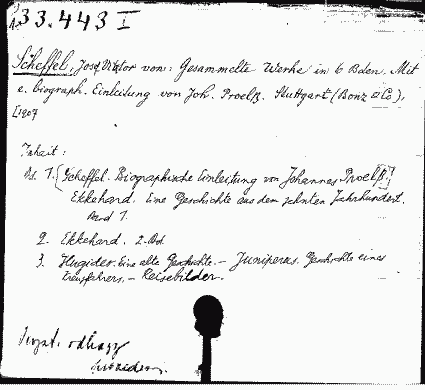 33.443 I
Scheffel, Josef Viktor von: Gesammelte Werke in 6 Bden. Mit
e. biograph. Einleitung von Joh. Proelß. Stuttgart (Bonz & Co),
[1907
Inhalt:
Bd. 1. [Scheffel. Biographische Einleitung von Johannes Proelß.]
Ekkehard. Eine Geschichte aus dem zehnten Jahrhundert.
Band 1.
2. Ekkehard. 2. Bd.
3. Hugideo. Eine alte Geschichte. – Juniperus. Geschichte eines
Kreuzfahrers. – Reisebilder.